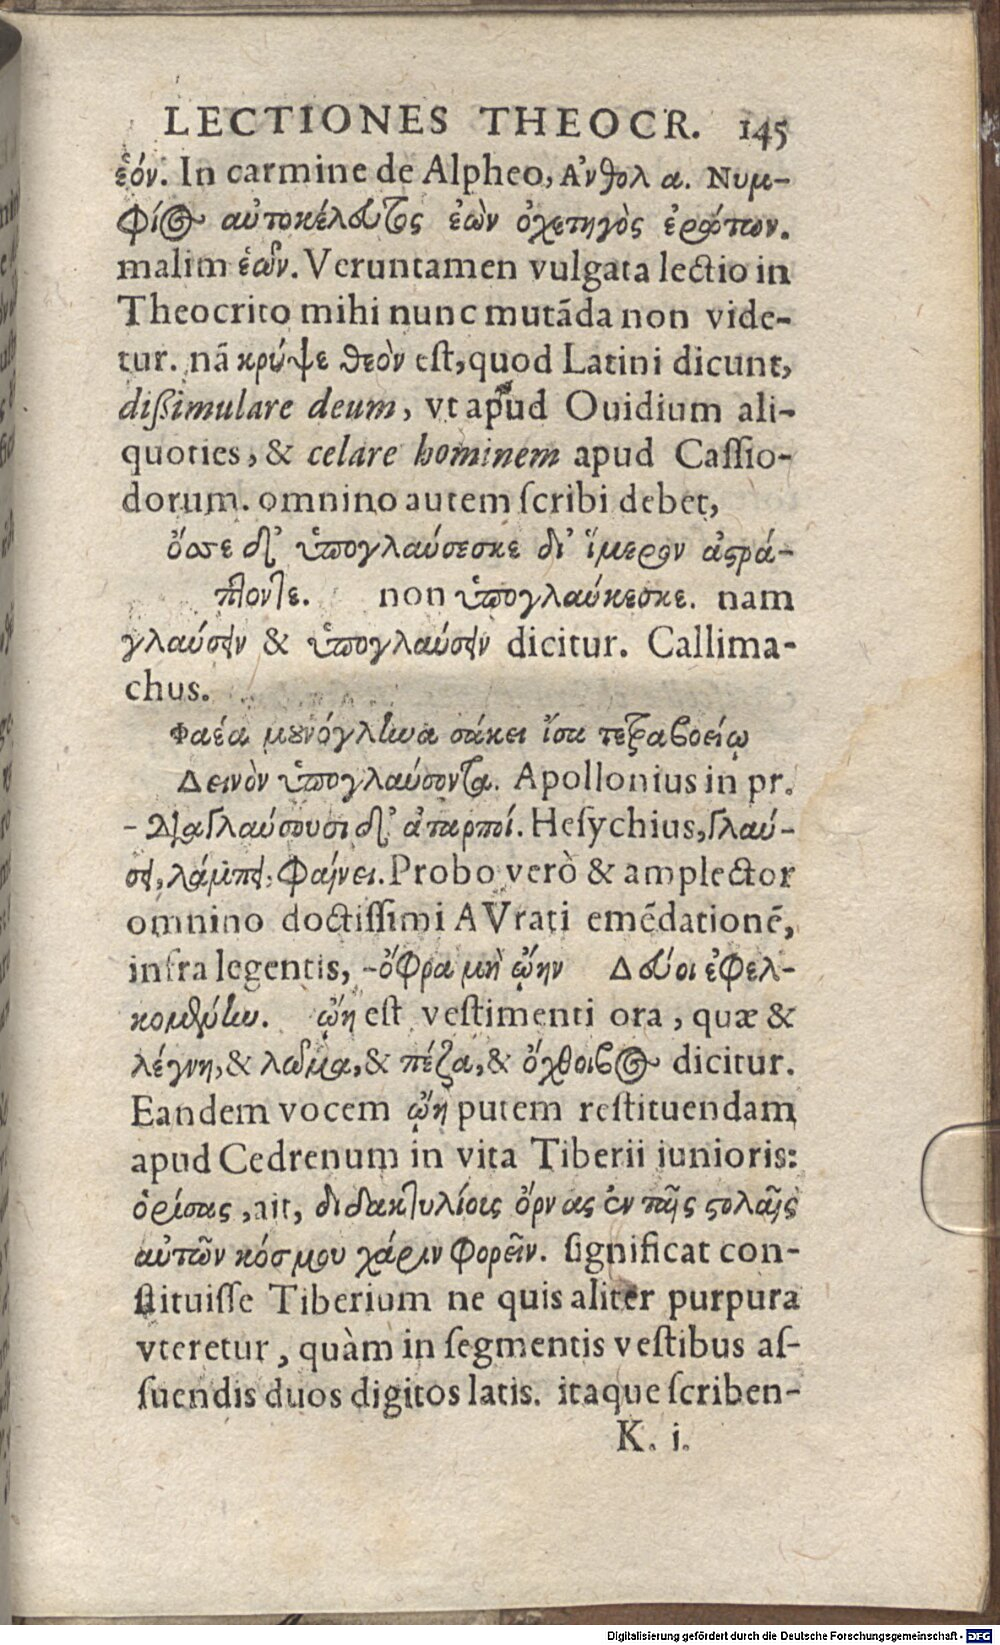 LECTIONES THEOCR. 145
ἑόν. In carmine de Alpheo, Ἀνθολ α. Νυμ-
φίος αὐτοκέλευθος ἐὼν ὀχετηγὸς ἐρώτων.
malim ἑῶν. Veruntamen vulgata lectio in
Theocrito mihi nunc mutãda non vide-
tur. nã κρύψε θεὸν est, quod Latini dicunt,
dißimulare deum, vt apud Ouidium ali-
quoties, & celare hominem apud Caſſio-
dorum. omnino autem ſcribi debet,
ὄσσε δ' ὑπογλαύσεσκε δι' ἵμερον ἀστρά-
πτοντε. non ὑπογλαύκεσκε. nam
γλαύσειν & ὑπογλαύσειν dicitur. Callima-
chus.
Φαέα μουνόγληνα σάκει ἴσα τετραβοείῳ
Δεινὸν ὑπογλαύσοντα. Apollonius in pr.
- Διαγλαύσουσι δ' ἀταρποί. Heſychius, γλαύ-
σει, λάμπει, φαίνει. Probo verò & amplector
omnino doctiſſimi AVrati emẽdationẽ,
infra legentis, -ὄφρα μὴ ᾤην Δεύοι ἐφελ-
κομένην. ᾤη eſt veſtimenti ora, quæ &
λέγνη, & λῶμα, & πέζα, & ὄχθοιβος dicitur.
Eandem vocem ᾤη putem reſtituendam
apud Cedrenum in vita Tiberii iunioris:
ὁρίσας, ait, διδακτυλίοις ὄρνας ἐν ταῖς στολαῖς
αὐτῶν κόσμου χάριν φορεῖν. ſignificat con-
ſtituiſſe Tiberium ne quis aliter purpura
vteretur, quàm in ſegmentis veſtibus aſ-
ſuendis duos digitos latis. itaque ſcriben-
K. i.
Digitalisierung gefördert durch die Deutsche Forschungsgemeinschaft - DFG